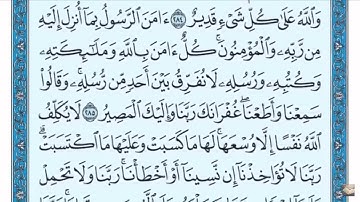 وَاللَّهُ عَلَىٰ كُلِّ شَىْءٍ قَدِيرٌ ٢٨٤ ءَامَنَ الرَّسُولُ بِمَا أُنزِلَ إِلَيْهِ
مِن رَّبِّهِ وَالْمُؤْمِنُونَ ۚ كُلٌّ ءَامَنَ بِاللَّهِ وَمَلَٰٓئِكَتِهِ
وَكُتُبِهِ وَرُسُلِهِ لَا نُفَرِّقُ بَيْنَ أَحَدٍ مِّن رُّسُلِهِ ۚ وَقَالُوا
سَمِعْنَا وَأَطَعْنَا ۖ غُفْرَانَكَ رَبَّنَا وَإِلَيْكَ الْمَصِيرُ ٢٨٥ لَا يُكَلِّفُ
اللَّهُ نَفْسًا إِلَّا وُسْعَهَا ۚ لَهَا مَا كَسَبَتْ وَعَلَيْهَا مَا اكْتَسَبَتْ ۗ
رَبَّنَا لَا تُؤَاخِذْنَا إِن نَّسِينَا أَوْ أَخْطَأْنَا ۚ رَبَّنَا وَلَا تَحْمِلْ